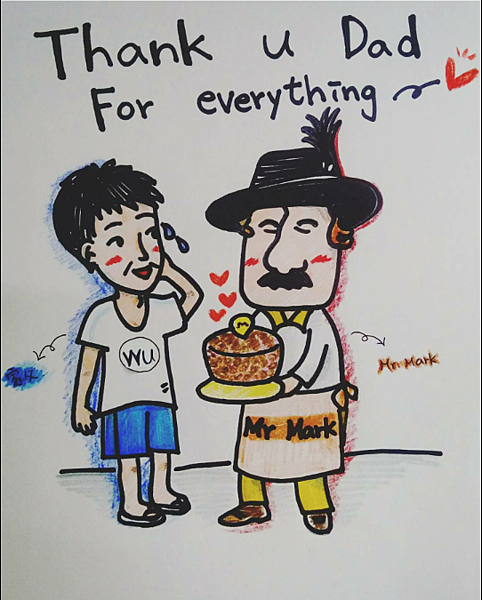 Thank u Dad
For everything
wu
M
Mr. Mark
Mr Mark